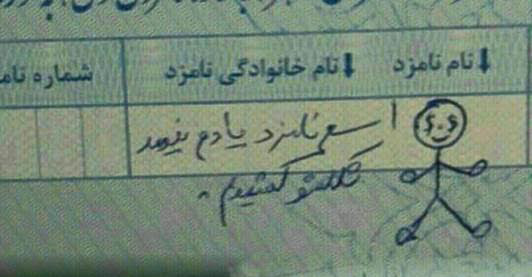 نام نامزد نام خانوادگی نامزد شماره
اسم نامزد یادم نیومد
عکسشو کشیدم.